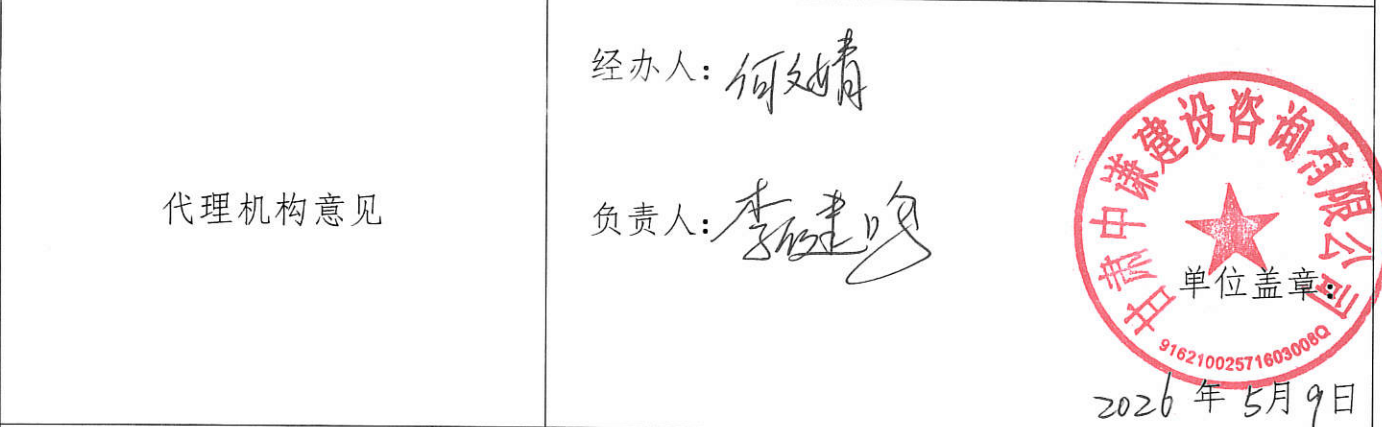 代理机构意见
经办人：何文婧
负责人：李
甘肃中谦建设咨询有限公司
单位盖章：
91621002571603008Q
2026年5月9日